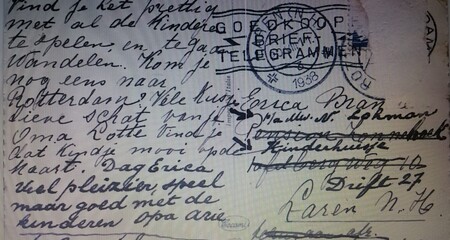 Vind je het prettig
met al de kinderen
te spelen, en te gaan
wandelen. Kom je
nog eens naar
Rotterdam? Vele kusjes
lieve schat van je
Oma Lotte Vind je
dat kindje mooi op de
kaart. Dag Erica
veel plezier, speel
maar goed met de
kinderen opa Arie
GOEDKOOP
BRIEF-
TELEGRAMMEN
1938
Erica Bran
Lohman
Pension
Kinderhuisje
Drift 27
Laren N. H.